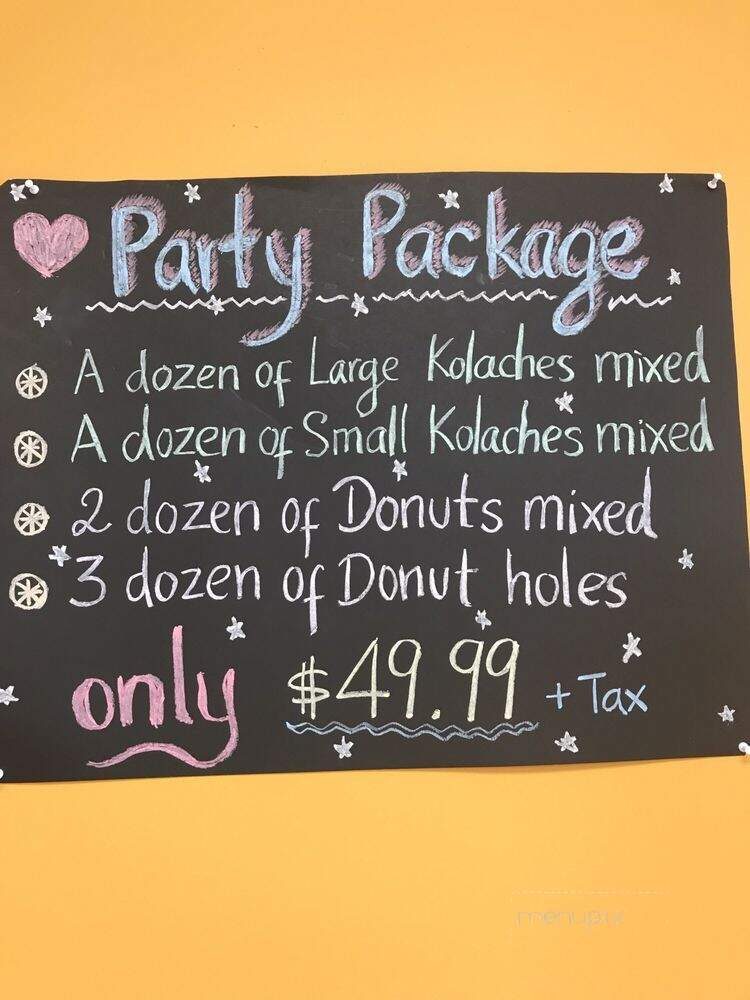 Party Package
A dozen of Large Kolaches mixed
A dozen of Small Kolaches mixed
2 dozen of Donuts mixed
3 dozen of Donut holes
only $49.99 + Tax
menupix